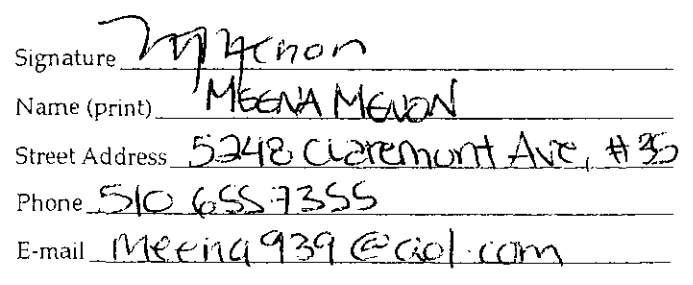 Signature M Menon
Name (print) MEENA MENON
Street Address 5248 Claremont Ave, #35
Phone 510 655-7355
E-mail Meena939@aol.com